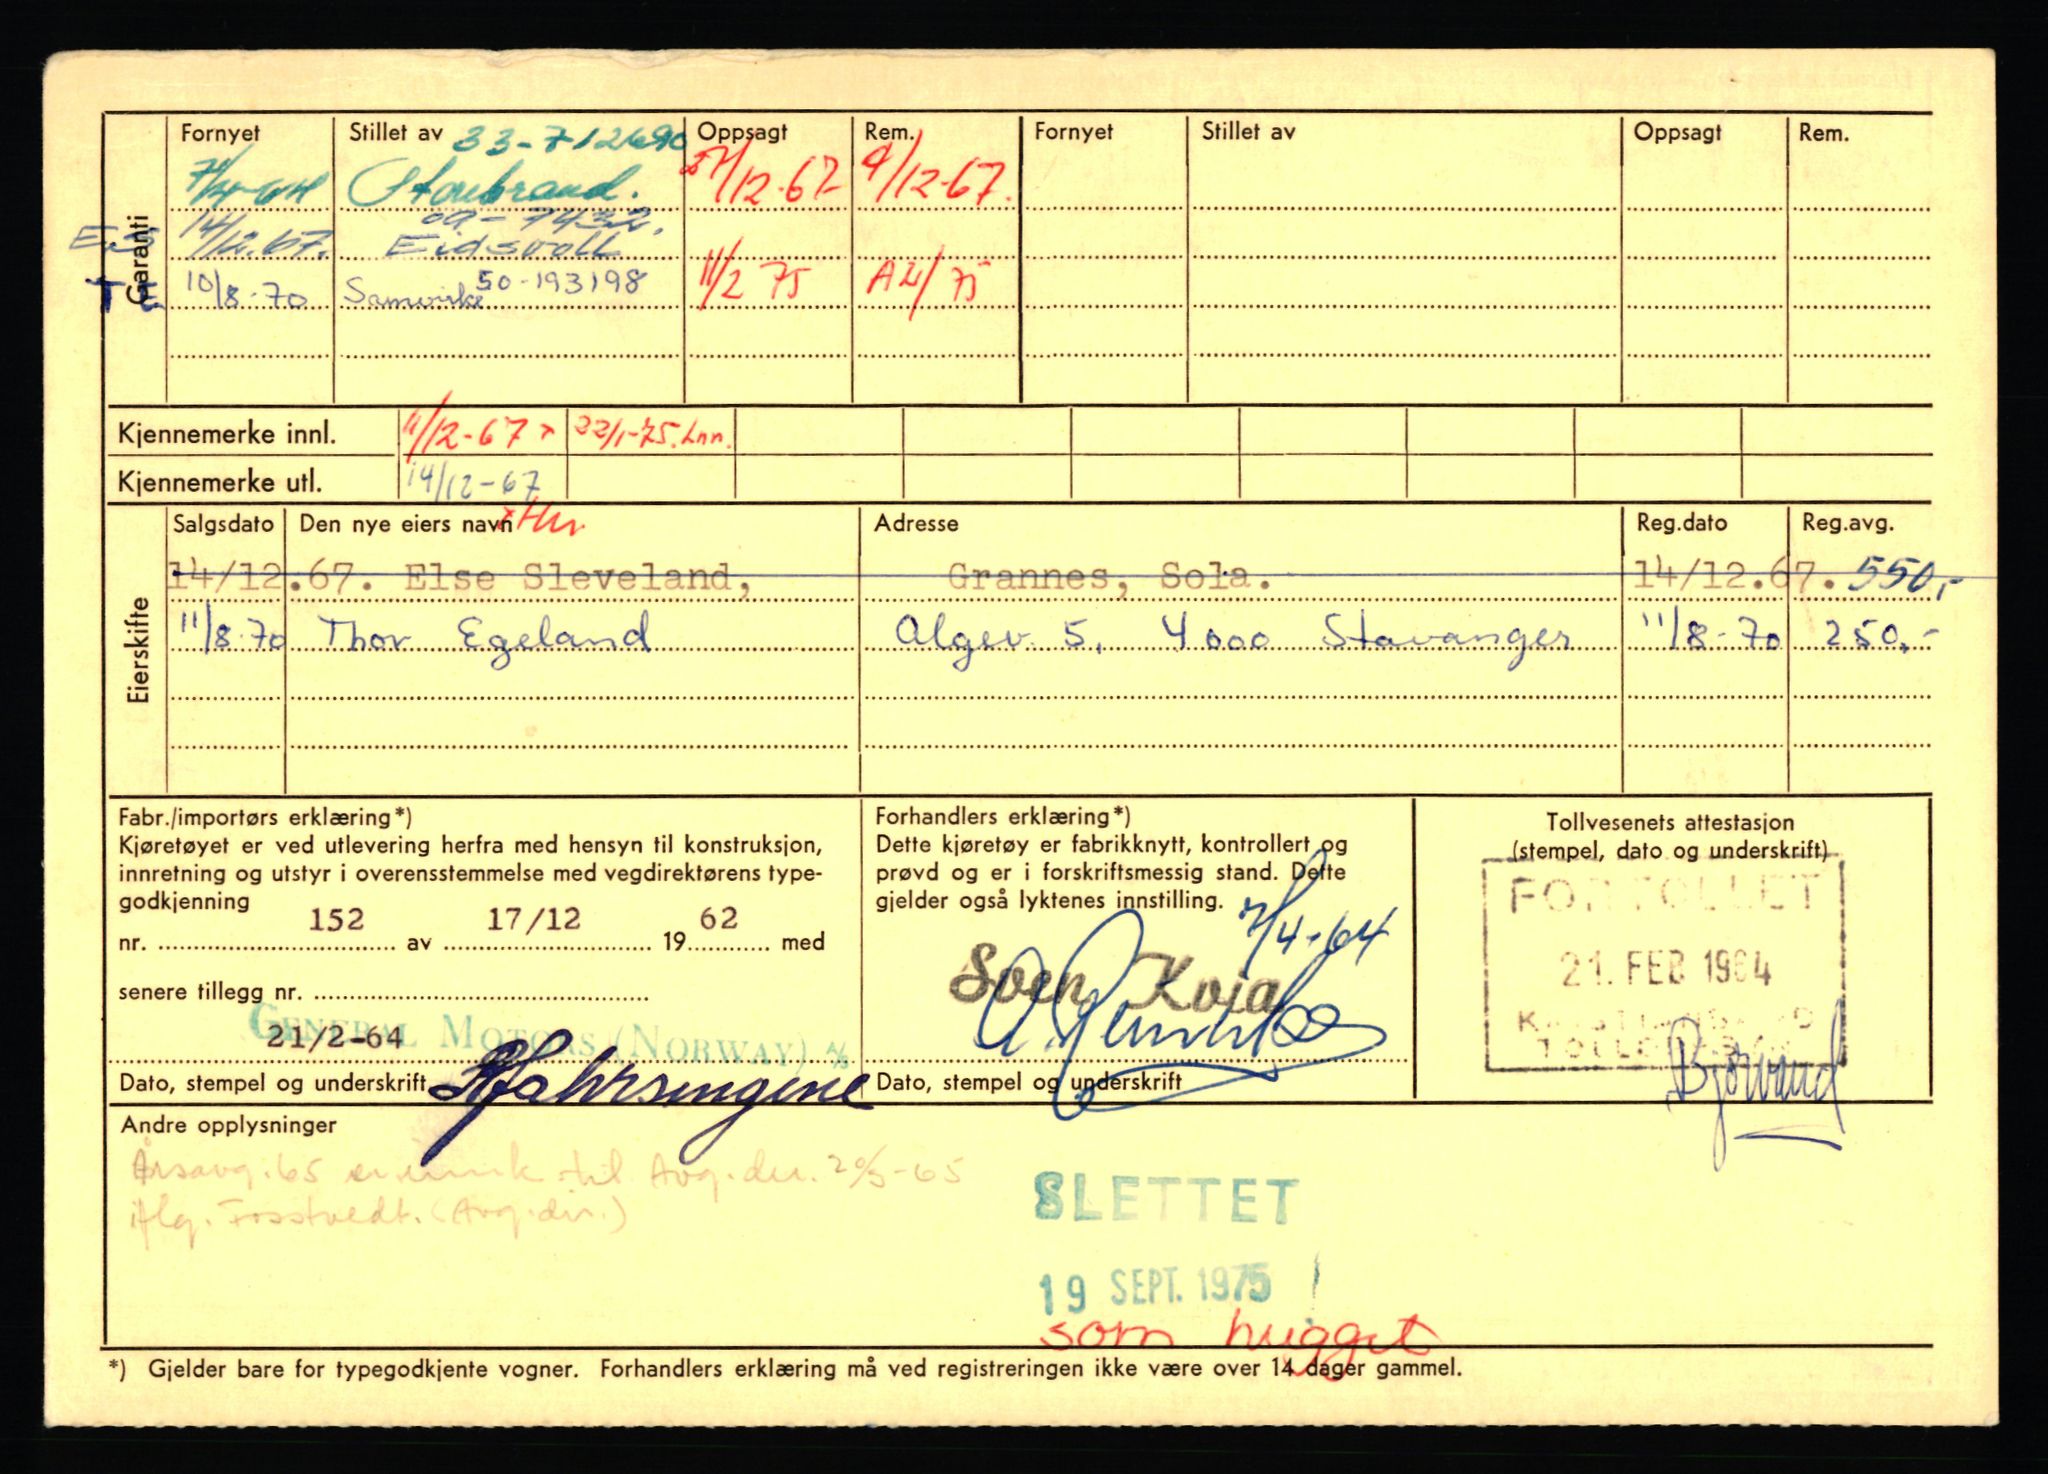 Garanti
Fornyet Stillet av 33-712690 Oppsagt Rem. Fornyet Stillet av Oppsagt Rem.
7/4-64 Storebrand. /12-67 9/12-67.
14/12.67. 09-7432. Eidsvoll
10/8-70 Samvirke 50-193198 11/2 75 /75
Kjennemerke innl. 11/12-67 x 22/1-75. Inn.
Kjennemerke utl. 14/12-67
Eierskifte
Salgsdato Den nye eiers navn Adresse Reg.dato Reg.avg.
14/12.67. Else Sleveland, Grannes, Sola. 14/12.67. 550,-
11/8-70 Thor Egeland Algev. 5, 4000 Stavanger 11/8-70 250,-
Fabr./importørs erklæring*)
Kjøretøyet er ved utlevering herfra med hensyn til konstruksjon,
innretning og utstyr i overensstemmelse med vegdirektørens type-
godkjenning
nr. 152 av 17/12 1962 med
senere tillegg nr.
GENERAL MOTORS (NORWAY) A/S
21/2-64
Dato, stempel og underskrift
Forhandlers erklæring*)
Dette kjøretøy er fabrikknytt, kontrollert og
prøvd og er i forskriftsmessig stand. Dette
gjelder også lyktenes innstilling.
7/4-64
Sven Kvia
Dato, stempel og underskrift
Tollvesenets attestasjon
(stempel, dato og underskrift)
FORTOLLET
21. FEB 1964
Bjorvand
Andre opplysninger
Årsavg. 65 til Avg.dir. 20/5-65
iflg. Fosstvedt. (Avg.dir.)
SLETTET
19 SEPT. 1975
som hugget
*) Gjelder bare for typegodkjente vogner. Forhandlers erklæring må ved registreringen ikke være over 14 dager gammel.